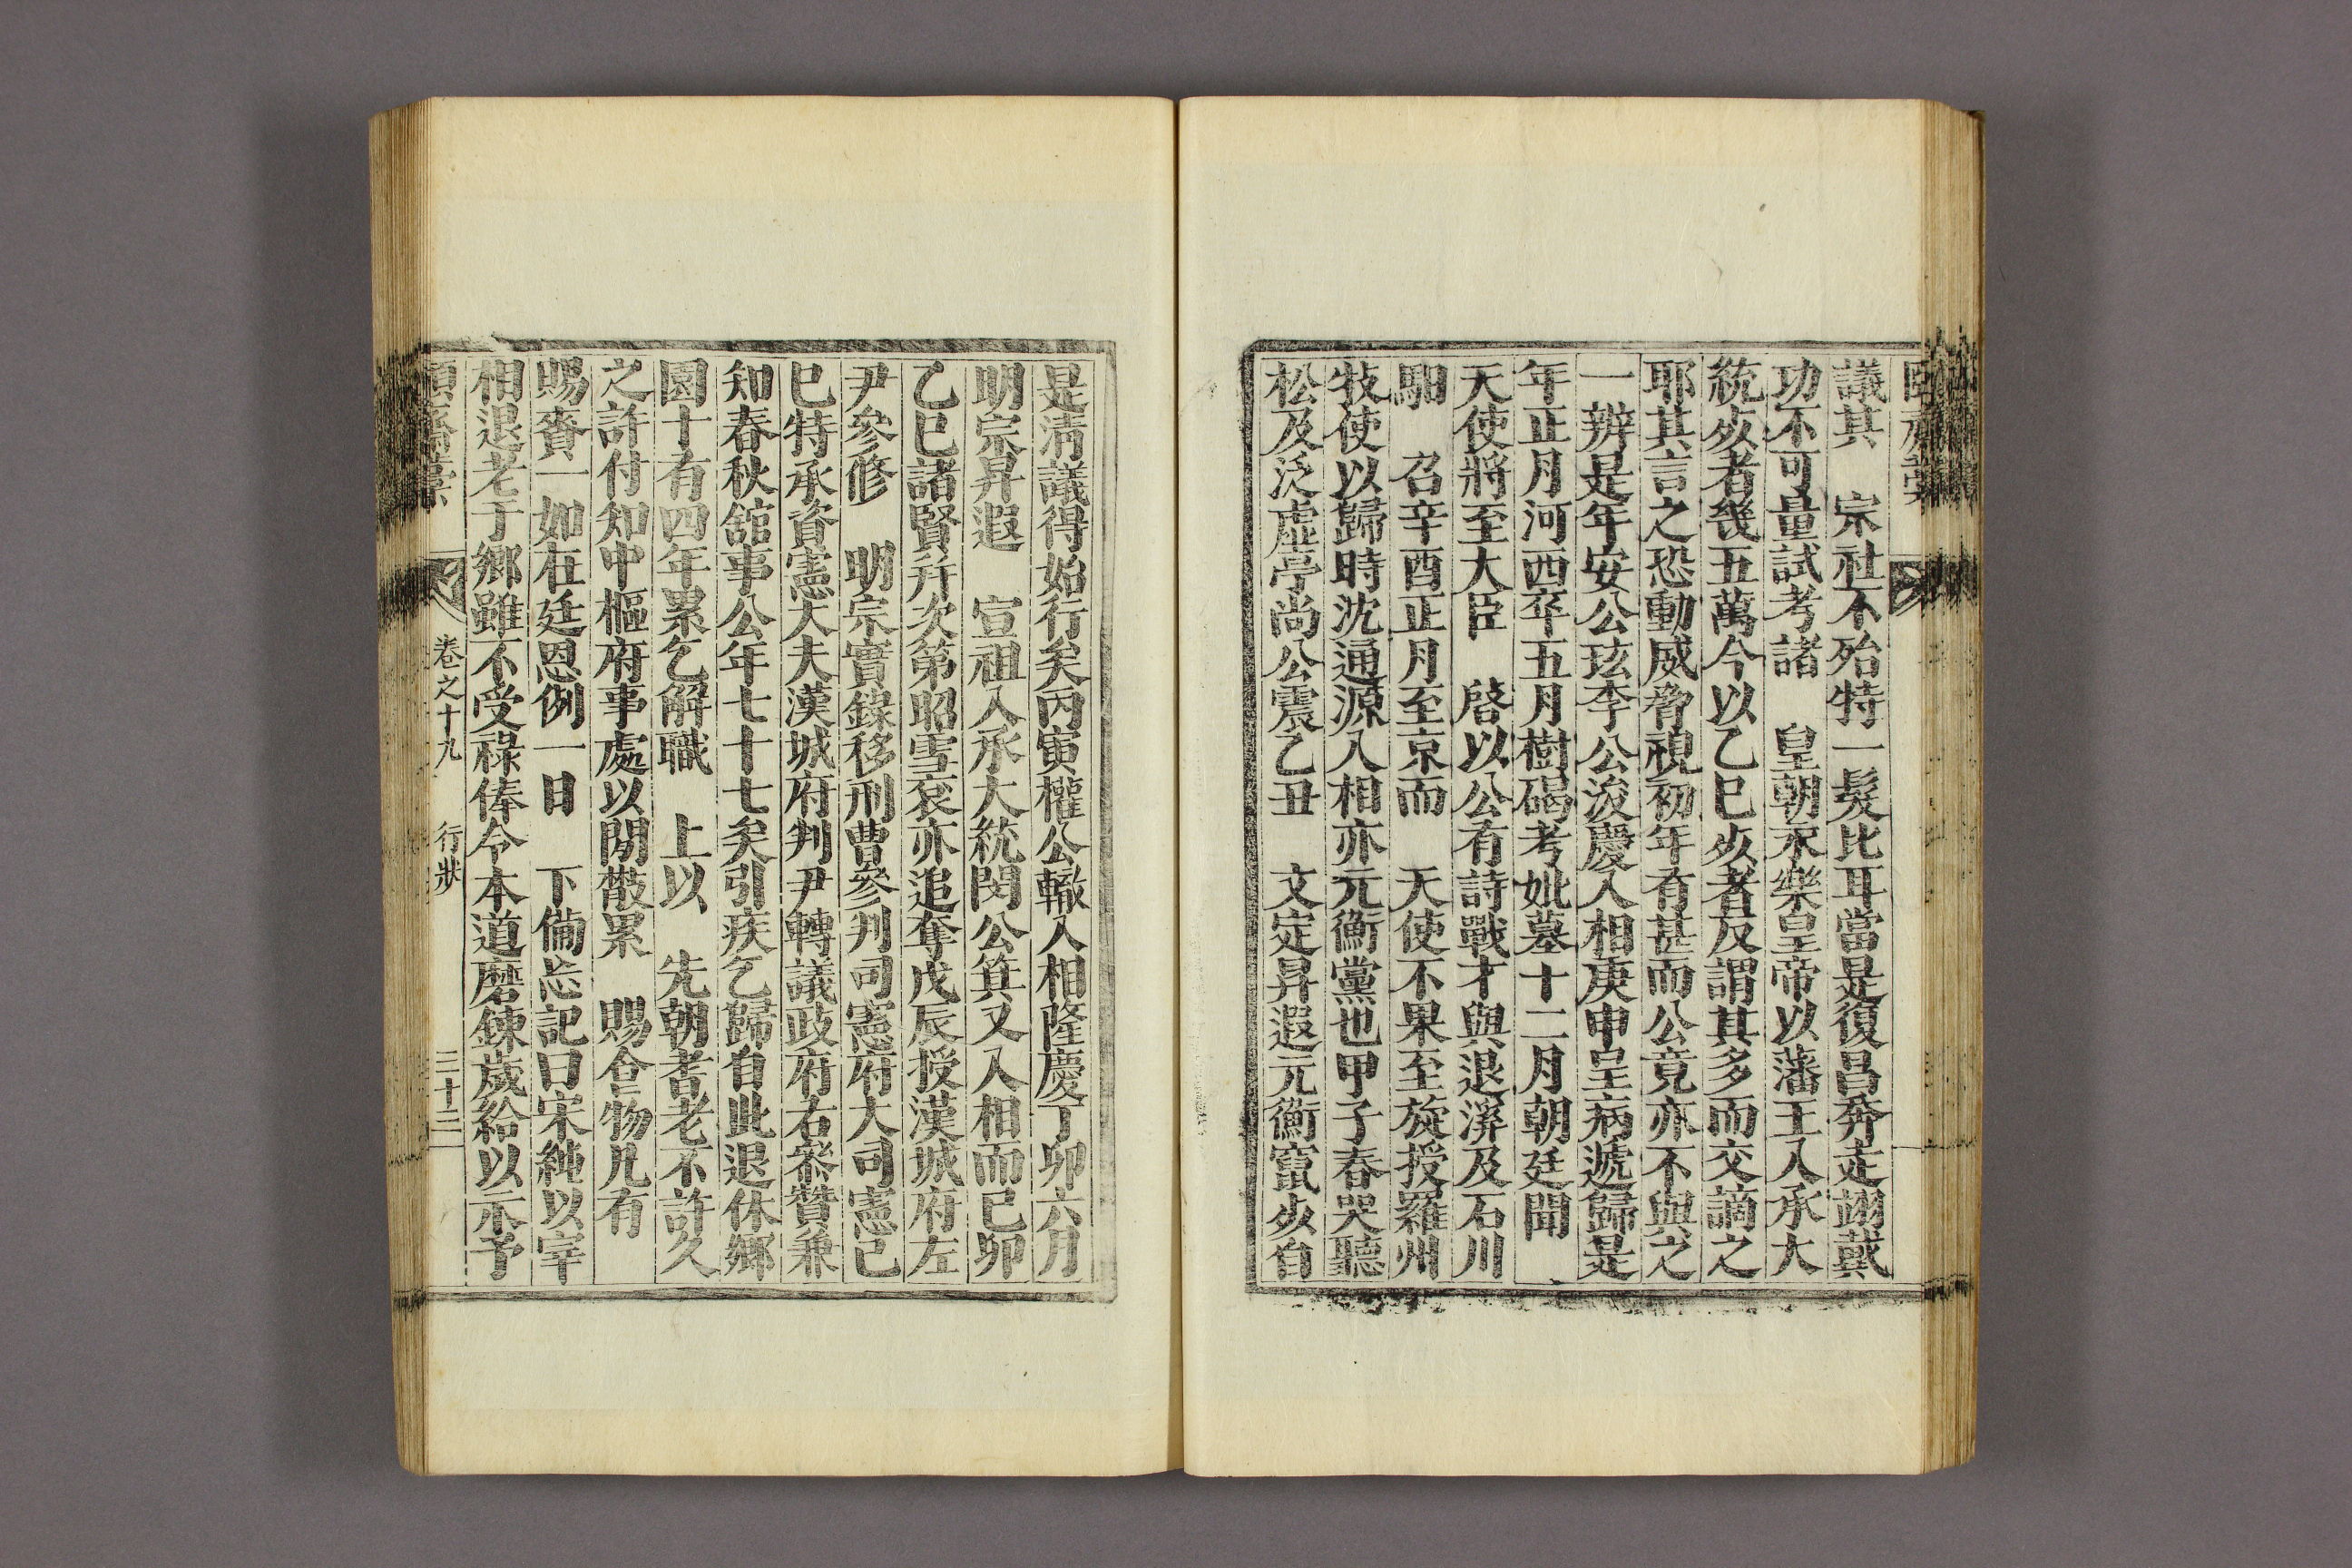 議其 宗社不殆特一髮比耳當是復昌奔走翊戴
功不可量試考諸 皇朝永樂皇帝以藩王入承大
統死者幾五萬今以乙巳死者反謂其多而交謫之
耶其言之恐動威脅視初年有甚而公竟亦不與之
一辨是年安公玹李公浚慶入相庚申呈病遞歸是
年正月河西卒五月樹碣考妣墓十二月朝廷聞
天使將至大臣 啓以公有詩戰才與退溪及石川
馹 召辛酉正月至京而 天使不果至旋授羅州
牧使以歸時沈通源入相亦元衡黨也甲子春哭聽
松及泛虛亭尚公震乙丑 文定昇遐元衡竄死自
是淸議得始行矣丙寅權公轍入相隆慶丁卯六月
明宗昇遐 宣祖入承大統閔公箕又入相而已卯
乙巳諸賢幷次第昭雪袞亦追奪戊辰授漢城府左
尹參修 明宗實錄移刑曹參判司憲府大司憲己
巳特承資憲大夫漢城府判尹轉議政府右叅贊兼
知春秋舘事公年七十七矣引疾乞歸自此退休鄉
園十有四年累乞解職 上以 先朝耆老不許久
之許付知中樞府事處以閒散累 賜食物凡有
賜賚一如在廷恩例一日 下備忘記曰宋純以宰
相退老于鄉雖不受祿俸令本道磨鍊歲給以示予
卷之十九 行狀 三十三